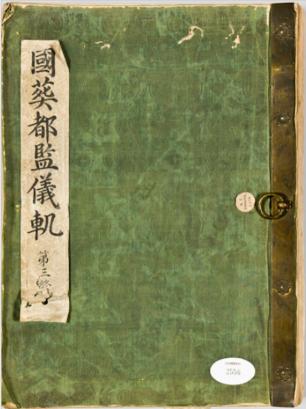 國葬都監儀軌
第三
2556